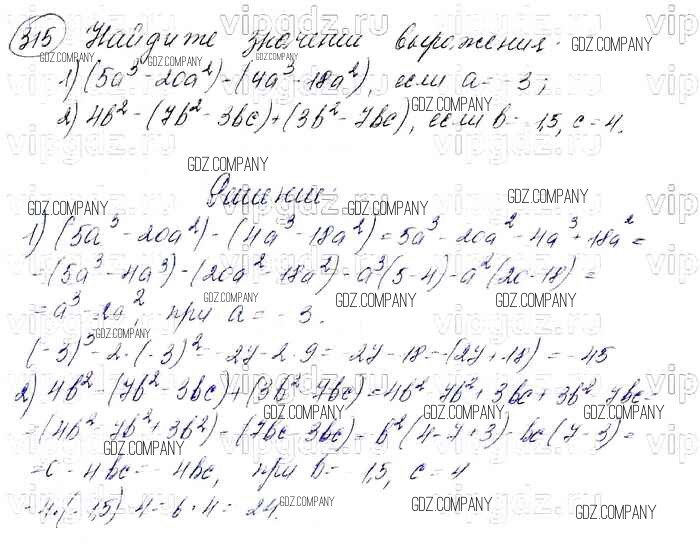 315 Найдите значения выражения.
1) (5a³ - 20a²) - (4a³ - 18a²), если a = -3;
2) 4b² - (7b² - 3bc) + (3b² - 7bc), если b = -1,5, c = 4.
Решение:
1) (5a³ - 20a²) - (4a³ - 18a²) = 5a³ - 20a² - 4a³ + 18a² =
= (5a³ - 4a³) - (20a² - 18a²) = a³(5-4) - a²(20-18) =
= a³ - 2a², при a = -3.
(-3)³ - 2·(-3)² = -27 - 2·9 = -27 - 18 = -(27+18) = -45
2) 4b² - (7b² - 3bc) + (3b² - 7bc) = 4b² - 7b² + 3bc + 3b² - 7bc =
= (4b² - 7b² + 3b²) - (7bc - 3bc) = b²(4-7+3) - bc(7-3) =
= 0 - 4bc = -4bc, при b = -1,5, c = 4
-4·(-1,5)·4 = 6·4 = 24.
GDZ.COMPANY
vipgdz.ru